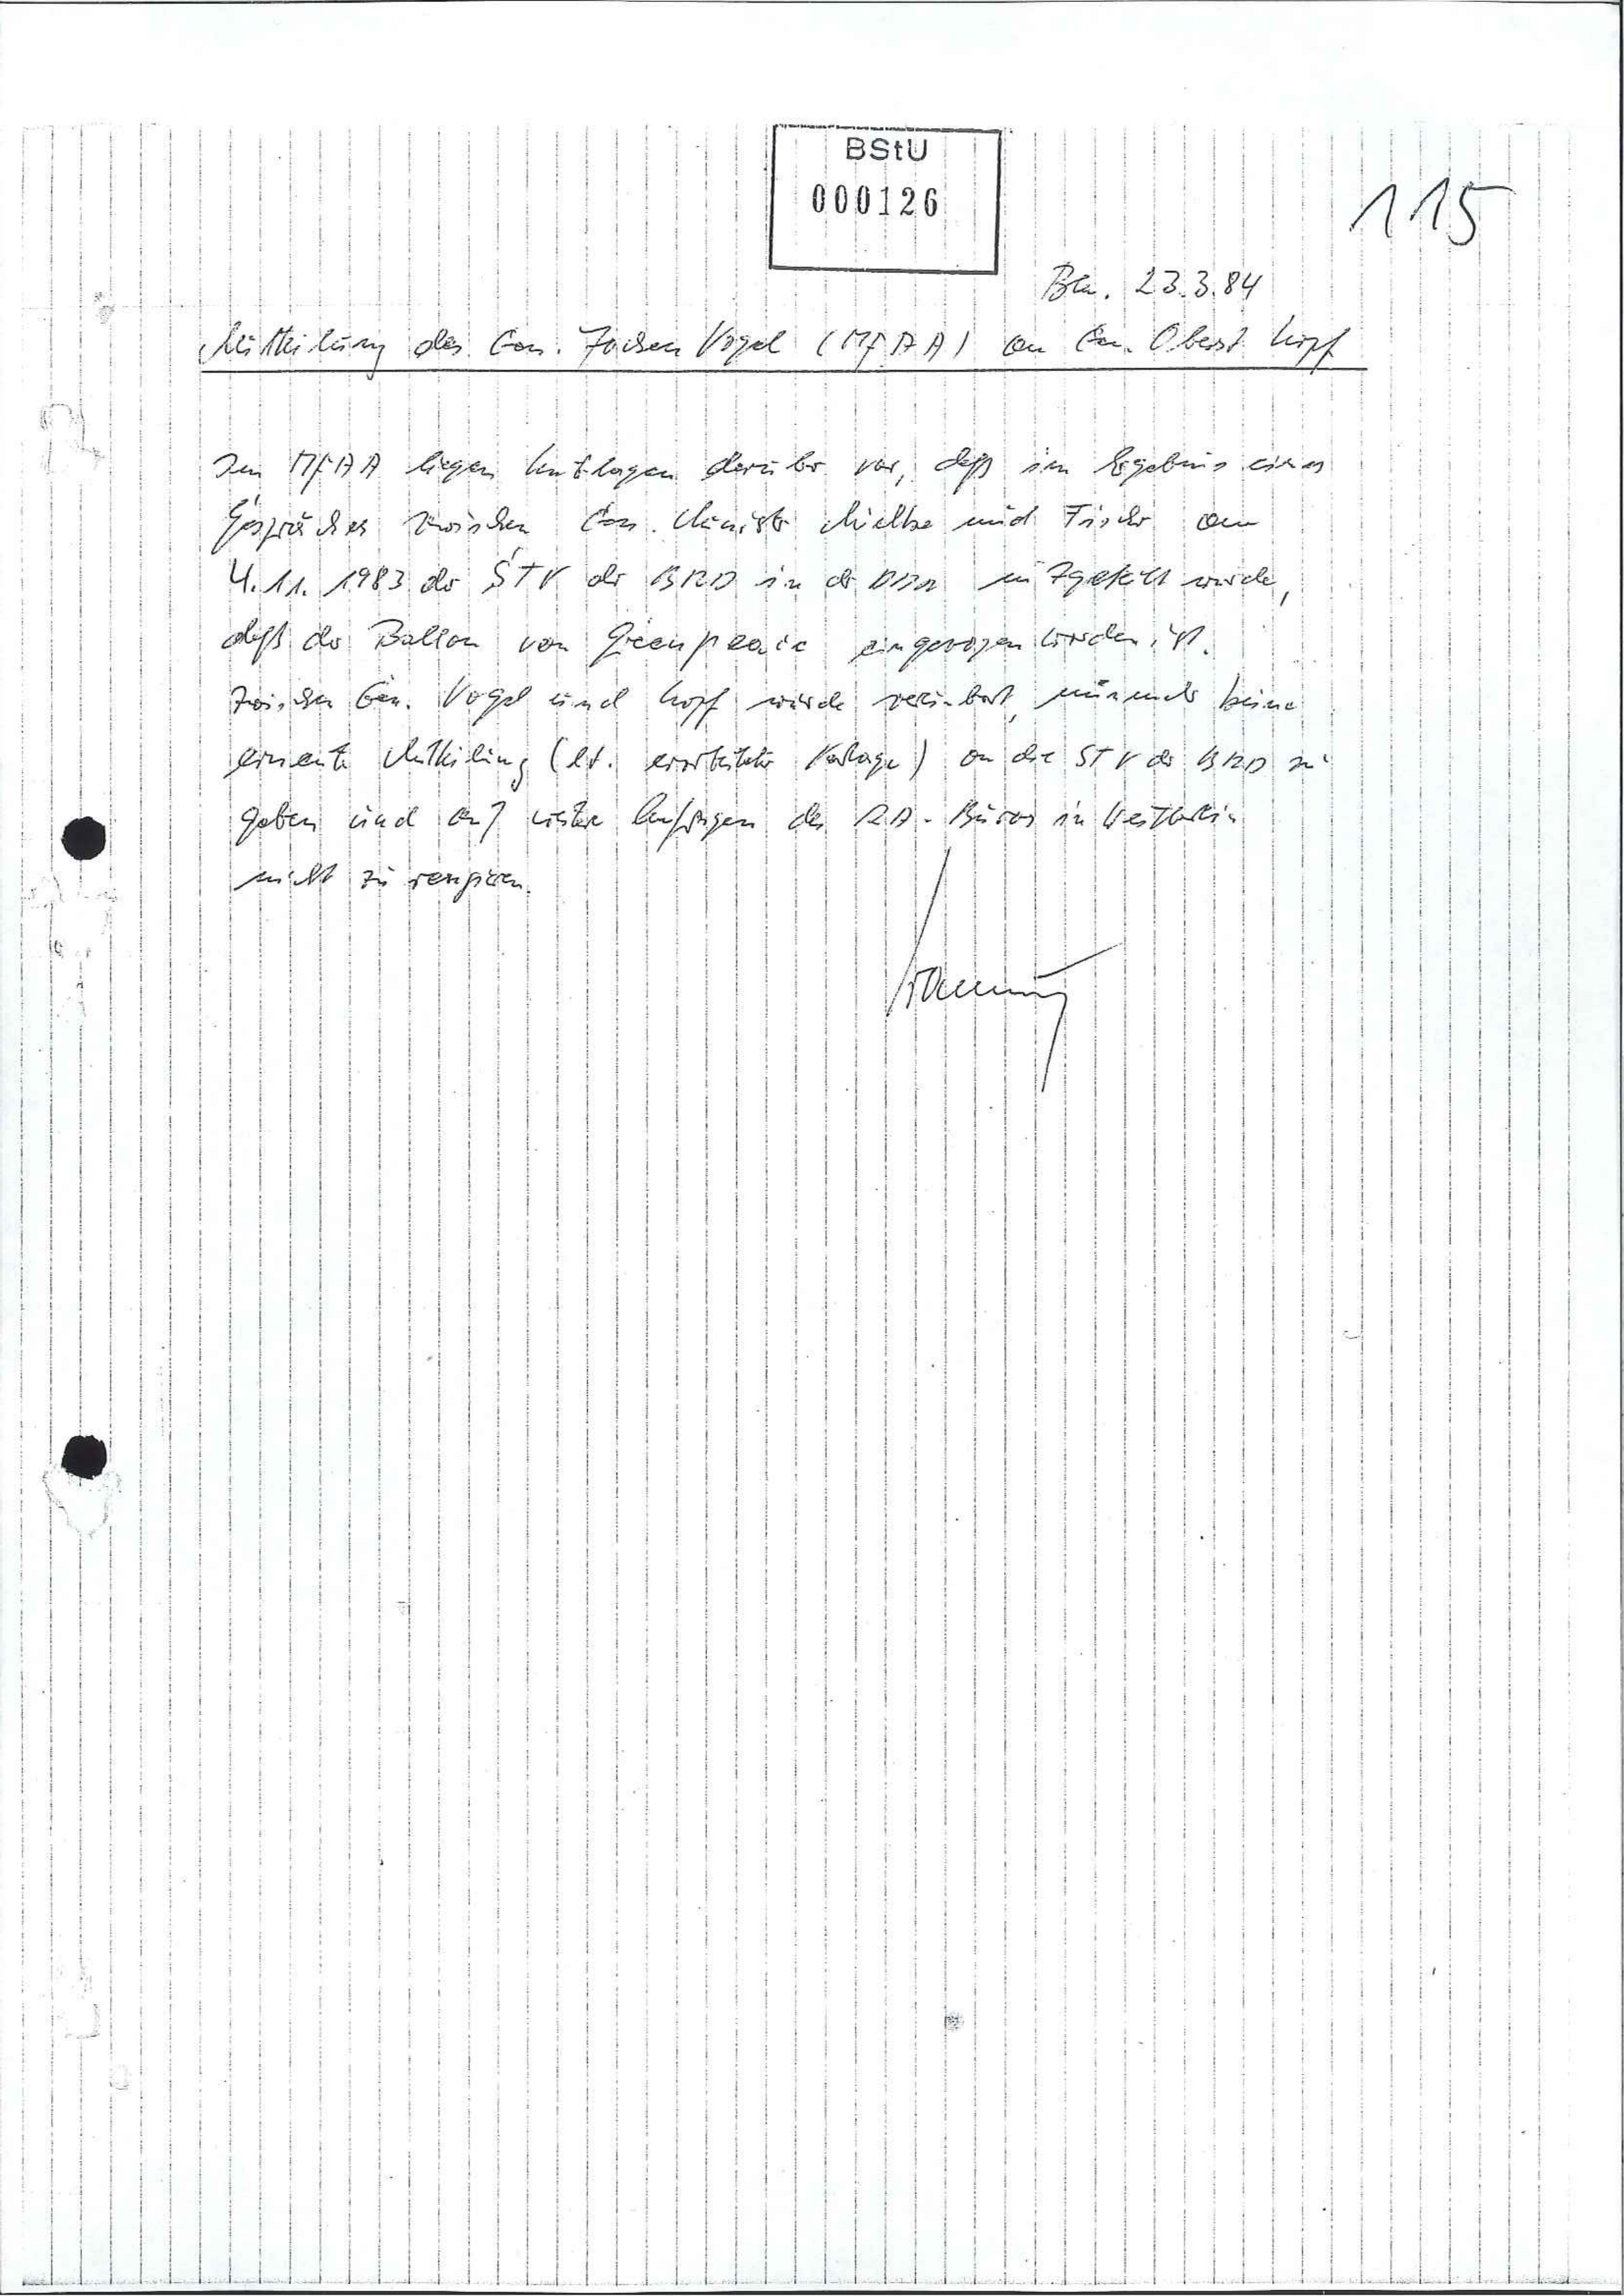 BStU
000126
115
Bln. 23.3.84
Mitteilung des Gen. Jochen Vogel (MfAA) an Gen. Oberst Kopf
Im MfAA liegen Unterlagen darüber vor, daß im Ergebnis eines
Gespräches zwischen Gen. Minister Mielke und Fischer am
4.11.1983 der STV der BRD in der DDR mitgeteilt wurde,
daß der Ballon von Greenpeace eingezogen worden ist.
Zwischen Gen. Vogel und Kopf wurde vereinbart, nunmehr keine
erneute Mitteilung (lt. erarbeiteter Vorlage) an die STV der BRD zu
geben und auf weitere Anfragen des RA-Büros in Westberlin
nicht zu reagieren.